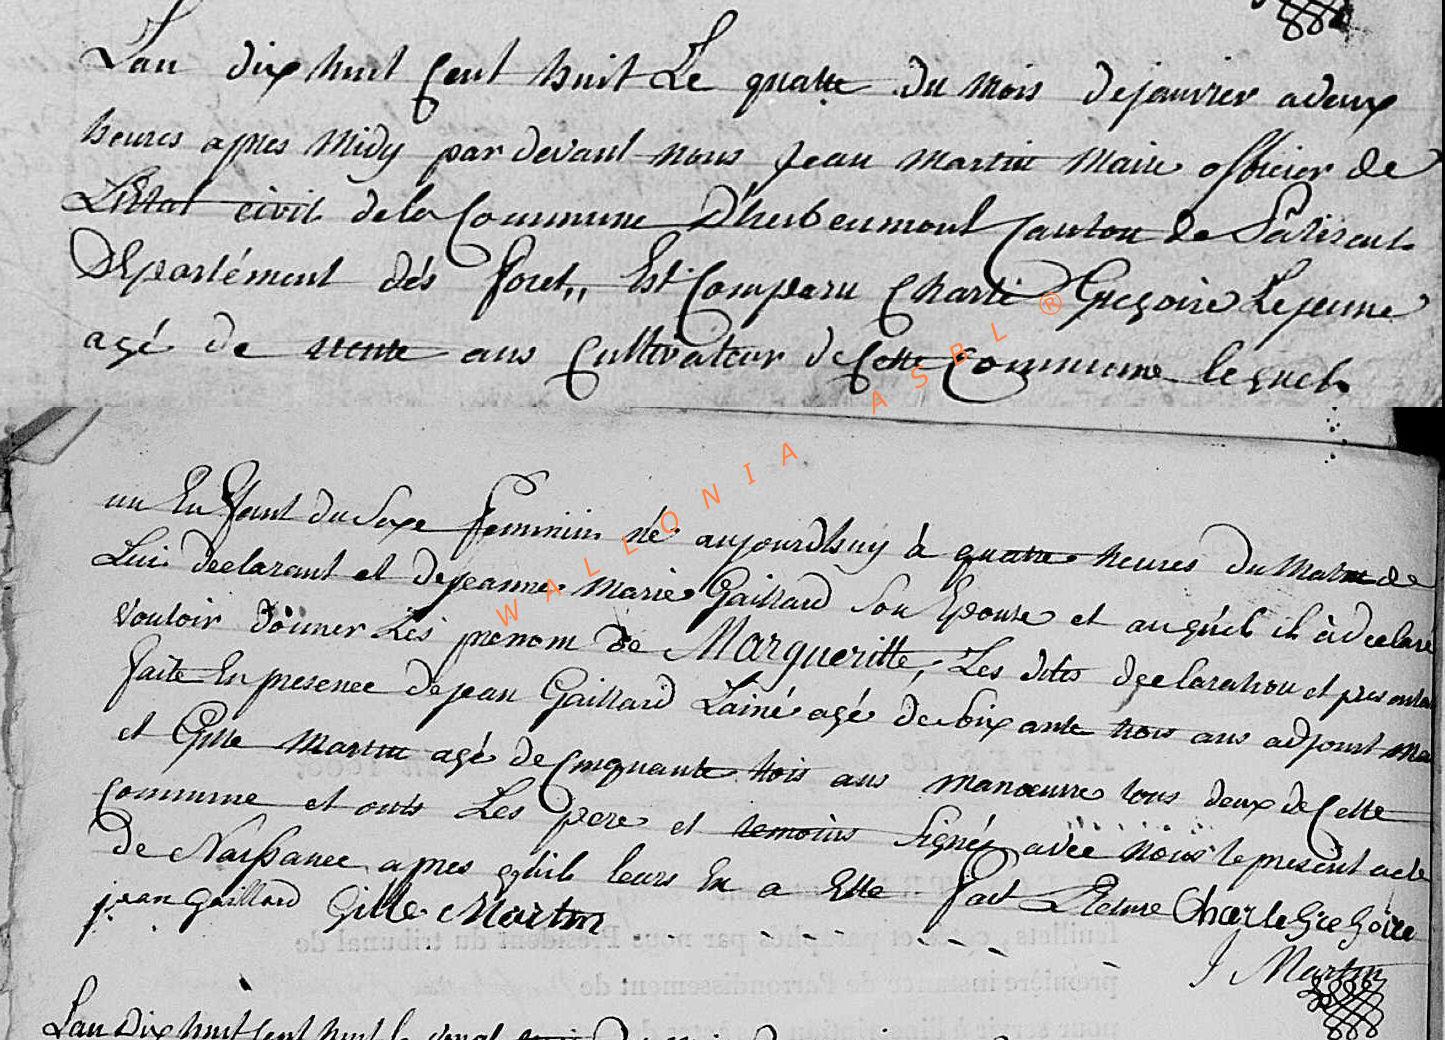 Lan dix huit Cent huit Le quatre du mois de janvier a deux
heures apres Midy par devant nous Jean martin Maire officier de
L'Etat civil de la Commune D'herbeumont Canton de
Departément dés foret,, Est Comparu Charle Gregoire Lejeune
agé de trente ans Cultivateur de Cette Commune lequel
un Enfant du Sexe feminin né aujourdhuy à quatre heures du Matin de
Lui declarant et de jeanne Marie Gaillard Son Epouse et auquel il à declaré
vouloir donner Les prenom de Margueritte, Les dites declaration et presentation
faite En presence de jean Gaillard Lainé agé de soixante trois ans adjoint
et Gille Martin agé de Cinquante trois ans manœuvre tous deux de Cette
Commune et onts Les pere et temoins Signés avec nous le present acte
de Naissance apres quil leurs En a Ette fait Lecture Charle Gregoire
jean gaillard Gille Martin
J Martin
WALLONIA ASBL ®
feuillets, cotés et paraphés par nous Président du tribunal de
première instance de l'arrondissement de
Lan Dix huit Cent huit le